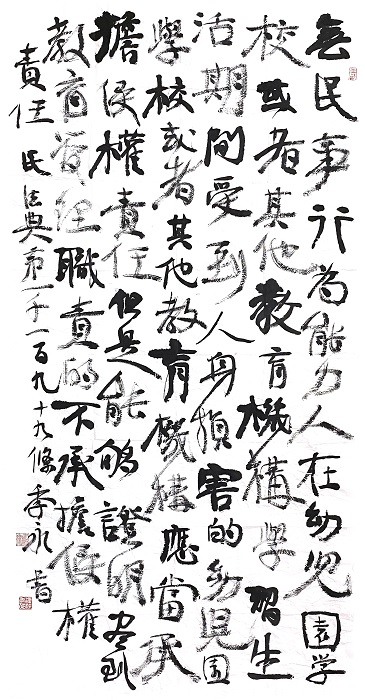 無民事行为能力人在幼兒園学
校或者其他教育機構學習生
活期間受到人身損害的幼兒園
學校或者其他教育機構應當承
擔侵權責任但是能夠證明盡到
教育管理職責的不承擔侵權
責任 民法典第一千一百九十九條 李永書